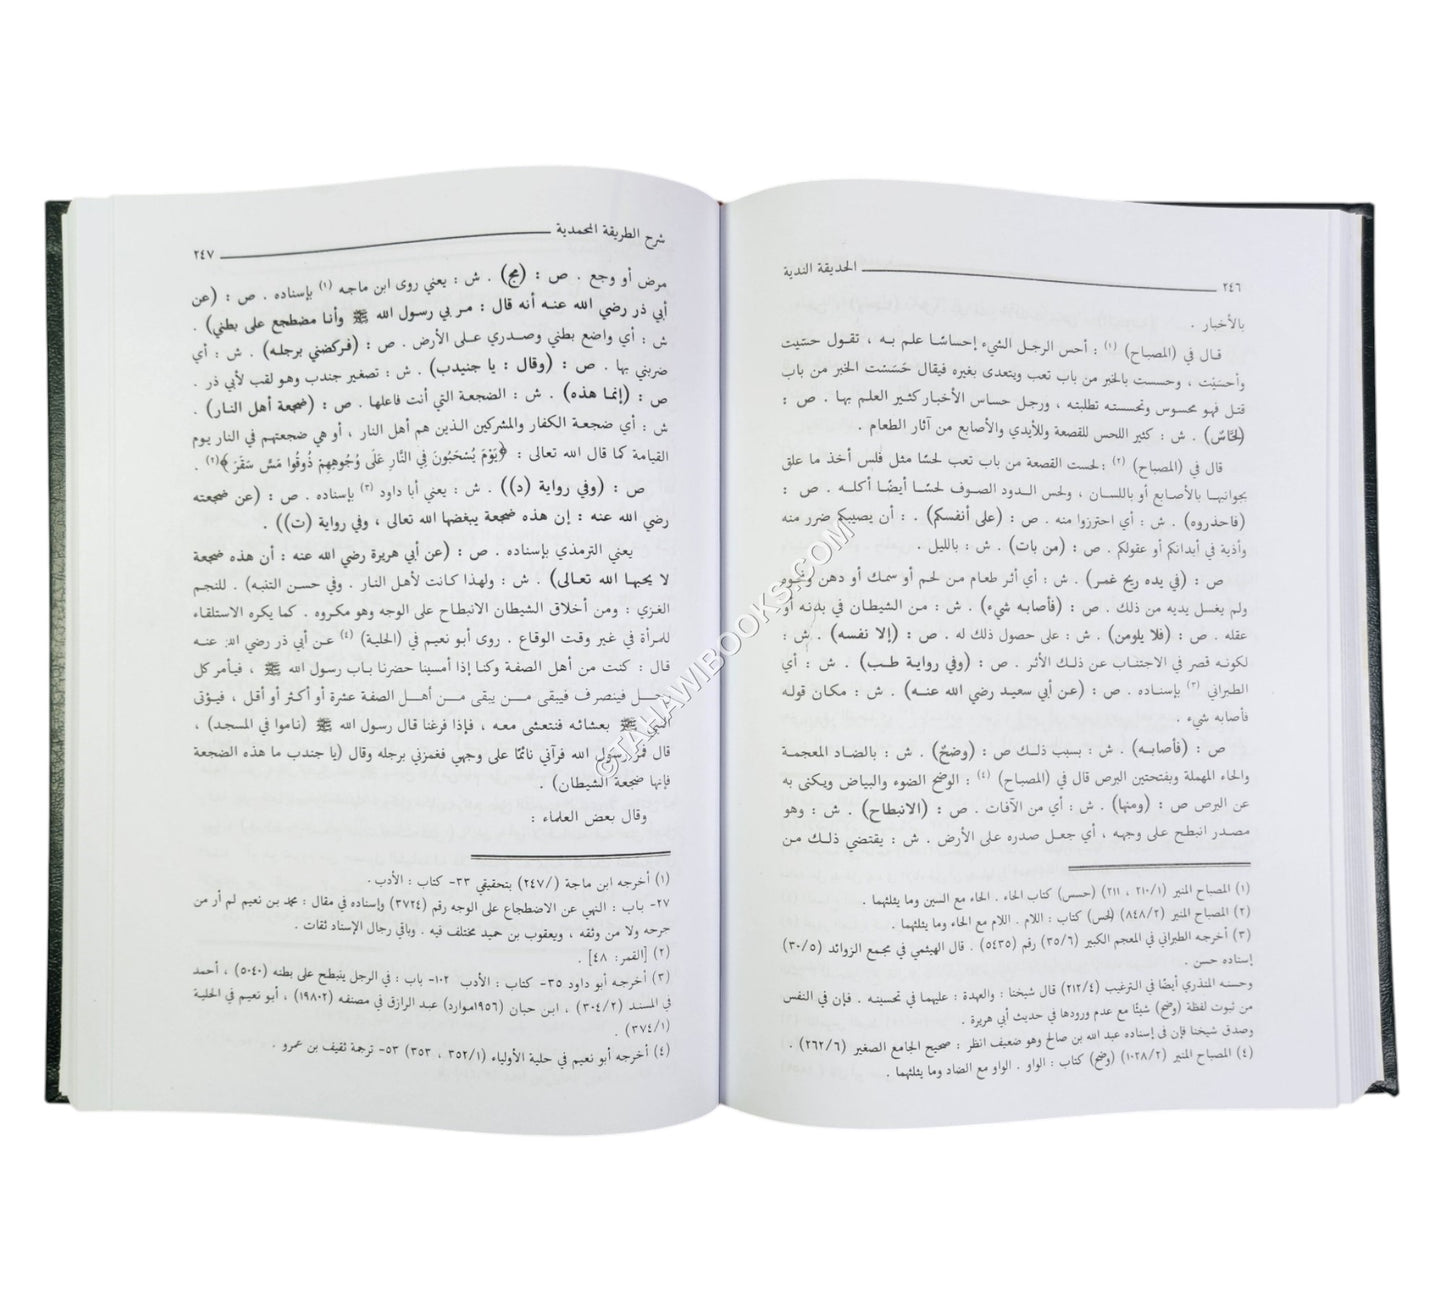 الحديقة الندية
٢٤٦
بالأخبار .
قال في (المصباح) (١) : أحس الرجل الشيء إحساسًا علم به ، تقول حسّيت
وأحسَيْت ، وحسست بالخبر من باب تعب ويتعدى بغيره فيقال حَسَسْت الخبر من باب
قتل فهو محسوس وتحسسته تطلبته ، ورجل حساس الأخبار كثير العلم بها . ص :
(لحَّاسٌ) . ش : كثير اللحس للقصعة وللأيدي والأصابع من آثار الطعام .
قال في (المصباح) (٢) :لحست القصعة من باب تعب لحسًا مثل فلس أخذ ما علق
بجوانبها بالأصابع أو باللسان ، ولحس الدود الصوف لحسًا أيضًا أكله . ص :
(فاحذروه) . ش : أي احترزوا منه . ص : (على أنفسكم) . : أن يصيبكم ضرر منه
وأذية في أبدانكم أو عقولكم . ص : (من بات) . ش : بالليل .
ص : (في يده ريح غمر) . ش : أي أثر طعام من لحم أو سمك أو دهن ونحوه
ولم يغسل يديه من ذلك . ص : (فأصابه شيء) . ش : من الشيطان في بدنه أو
عقله . ص : (فلا يلومن) . ش : على حصول ذلك له . ص : (إلا نفسه) . ش :
لكونه قصر في الاجتناب عن ذلك الأثر . ص : (وفي رواية طب) . ش : أي
الطبراني (٣) بإسناده . ص : (عن أبي سعيد رضي الله عنه) . ش : مكان قوله
فأصابه شيء .
ص : (فأصابه) . ش : بسبب ذلك ص : (وضحٌ) . ش : بالضاد المعجمة
والحاء المهملة وبفتحتين البرص قال في (المصباح) (٤) : الوضح الضوء والبياض ويكنى به
عن البرص ص : (ومنها) . ش : أي من الآفات . ص : (الانبطاح) . ش : وهو
مصدر انبطح على وجهه ، أي جعل صدره على الأرض . ش : يقتضي ذلك من
(١) المصباح المنير (٢١٠/١ ، ٢١١) (حسس) كتاب الحاء . الحاء مع السين وما يثلثهما .
(٢) المصباح المنير (٨٤٨/٢) (لحس) كتاب : اللام . اللام مع الحاء وما يثلثهما .
(٣) أخرجه الطبراني في المعجم الكبير (٣٥/٦) رقم (٥٤٣٥) . قال الهيثمي في مجمع الزوائد (٣٠/٥)
إسناده حسن .
وحسنه المنذري أيضًا في الترغيب (٢١٢/٤) قال شيخنا : والعهدة : عليهما في تحسينه . فإن في النفس
من ثبوت لفظة (وضح) شيئًا مع عدم ورودها في حديث أبي هريرة .
وصدق شيخنا فإن في إسناده عبد الله بن صالح وهو ضعيف انظر : صحيح الجامع الصغير (٢٦٢/٦) .
(٤) المصباح المنير (١٠٢٨/٢) (وضح) كتاب : الواو . الواو مع الضاد وما يثلثهما .
شرح الطريقة المحمدية
٢٤٧
مرض أو وجع . ص : (مج) . ش : يعني روى ابن ماجه (١) بإسناده . ص : (عن
أبي ذر رضي الله عنه أنه قال : مر بي رسول الله ﷺ وأنا مضطجع على بطني) .
ش : أي واضع بطني وصدري على الأرض . ص : (فركضني برجله) . ش : أي
ضربني بها . ص : (وقال : يا جنيدب) . ش : تصغير جندب وهو لقب لأبي ذر .
ص : (إنما هذه) . ش : الضجعة التي أنت فاعلها . ص : (ضجعة أهل النار) .
ش : أي ضجعة الكفار والمشركين الذين هم أهل النار ، أو هي ضجعتهم في النار يوم
القيامة كما قال الله تعالى : ﴿يَوْمَ يُسْحَبُونَ فِي النَّارِ عَلَى وُجُوهِهِمْ ذُوقُوا مَسَّ سَقَرَ﴾(٢) .
ص : (وفي رواية (د)) . ش : يعني أبا داود (٣) بإسناده . ص : (عن ضجعته
رضي الله عنه : إن هذه ضجعة يبغضها الله تعالى ، وفي رواية (ت)) .
يعني الترمذي بإسناده . ص : (عن أبي هريرة رضي الله عنه : أن هذه ضجعة
لا يحبها الله تعالى) . ش : ولهذا كانت لأهل النار . وفي حسن التنبه) . للنجم
الغزي : ومن أخلاق الشيطان الانبطاح على الوجه وهو مكروه . كما يكره الاستلقاء
للمرأة في غير وقت الوقاع . روى أبو نعيم في (الحلية) (٤) عن أبي ذر رضي الله عنه
قال : كنت من أهل الصفة وكنا إذا أمسينا حضرنا باب رسول الله ﷺ ، فيأمر كل
رجل فينصرف فيبقى من يبقى من أهل الصفة عشرة أو أكثر أو أقل ، فيؤتى
النبي ﷺ بعشائه فنتعشى معه ، فإذا فرغنا قال رسول الله ﷺ (ناموا في المسجد) ،
قال فمر رسول الله فرآني نائمًا على وجهي فغمزني برجله وقال (يا جندب ما هذه الضجعة
فإنها ضجعة الشيطان) .
وقال بعض العلماء :
(١) أخرجه ابن ماجة (/٢٤٧) بتحقيقي ٣٣- كتاب : الأدب .
٢٧- باب : النهي عن الاضطجاع على الوجه رقم (٣٧٢٤) وإسناده في مقال : محمد بن نعيم لم أر من
جرحه ولا من وثقه ، ويعقوب بن حميد مختلف فيه . وباقي رجال الإسناد ثقات .
(٢) [القمر: ٤٨] .
(٣) أخرجه أبو داود ٣٥- كتاب : الأدب ١٠٢- باب : في الرجل ينبطح على بطنه (٥٠٤٠) ، أحمد
في المسند (٣٠٤/٢) ، ابن حبان (١٩٥٦موارد) عبد الرازق في مصنفه (١٩٨٠٢) ، أبو نعيم في الحلية
(٣٧٤/١) .
(٤) أخرجه أبو نعيم في حلية الأولياء (٣٥٢/١ ، ٣٥٣) ٥٣- ترجمة ثقيف بن عمرو .
©TAHAWIBOOKS.COM